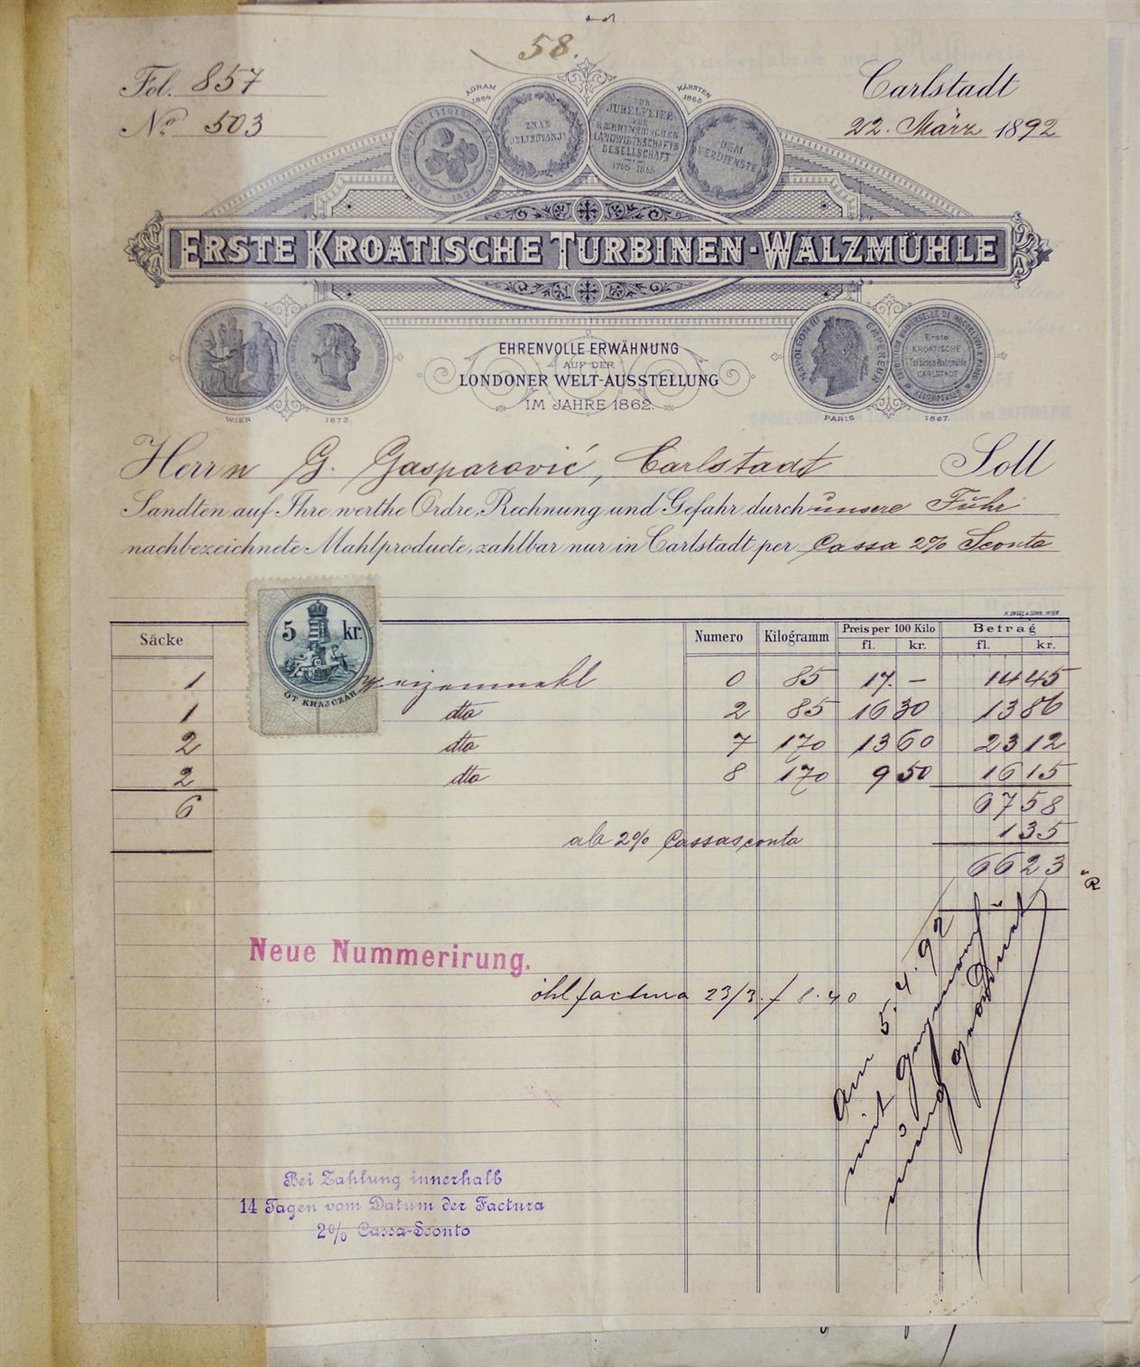 58.
Fol. 857
No 503
Carlstadt
22. März 1892
AGRAM 1864
KÄRNTEN 1865
ZNAK PRIZNANJA
ZUR JUBELFEIER DER KÄRNTNERISCHEN LANDWIRTHSCHAFTS GESELLSCHAFT
DEM VERDIENSTE
ERSTE KROATISCHE TURBINEN-WALZMÜHLE
EHRENVOLLE ERWÄHNUNG
AUF DER
LONDONER WELT-AUSSTELLUNG
IM JAHRE 1862.
WIEN 1873.
NAPOLEON III EMPEREUR
Erste KROATISCHE Turbinen-Walzmühle CARLSTADT
PARIS 1867.
Herrn G. Gasparović, Carlstadt Soll
Sandten auf Ihre werthe Ordre, Rechnung und Gefahr durch unsere Fuhr
nachbezeichnete Mahlproducte, zahlbar nur in Carlstadt per Cassa 2% Sconto
Säcke Numero Kilogramm Preis per 100 Kilo Betrag
fl. kr. fl. kr.
5 kr.
ÖT KRAJCZÁR
1 Weizenmehl 0 85 17 – 14 45
1 dto 2 85 16 30 13 86
2 dto 7 170 13 60 23 12
2 dto 8 170 9 50 16 15
6 67 58
ab 2% Cassasconto 1 35
66 23
Neue Nummerirung.
öhlfactura 23/3. / 8.40
Am 5.4.92
mit
Bei Zahlung innerhalb
14 Tagen vom Datum der Factura
2% Cassa-Sconto